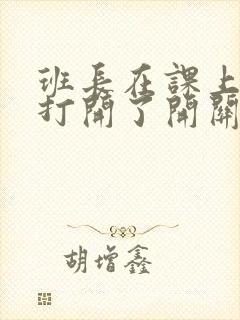 班長在課上
打開了開關
胡增鑫